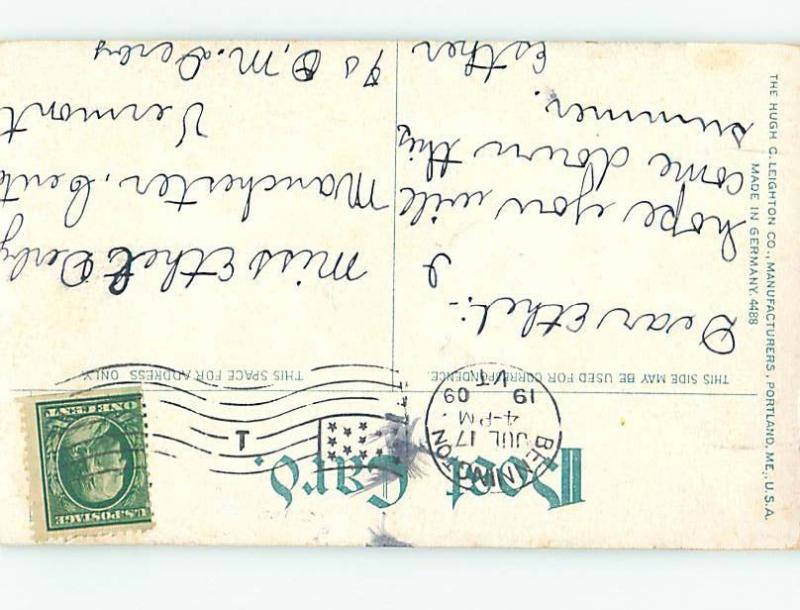 Post Card.
THIS SIDE MAY BE USED FOR CORRESPONDENCE.
THIS SPACE FOR ADDRESS ONLY.
BENNINGTON
JUL 17
4-PM
19 09
VT.
1
U.S. POSTAGE
ONE CENT
Dear Ethel:-
I
hope you will
come down this
summer.
Esther
Miss Ethel Derby
Manchester, Cent
Vermont
% O. M. Derby
THE HUGH C. LEIGHTON CO., MANUFACTURERS, PORTLAND, ME., U.S.A.
MADE IN GERMANY. 4488